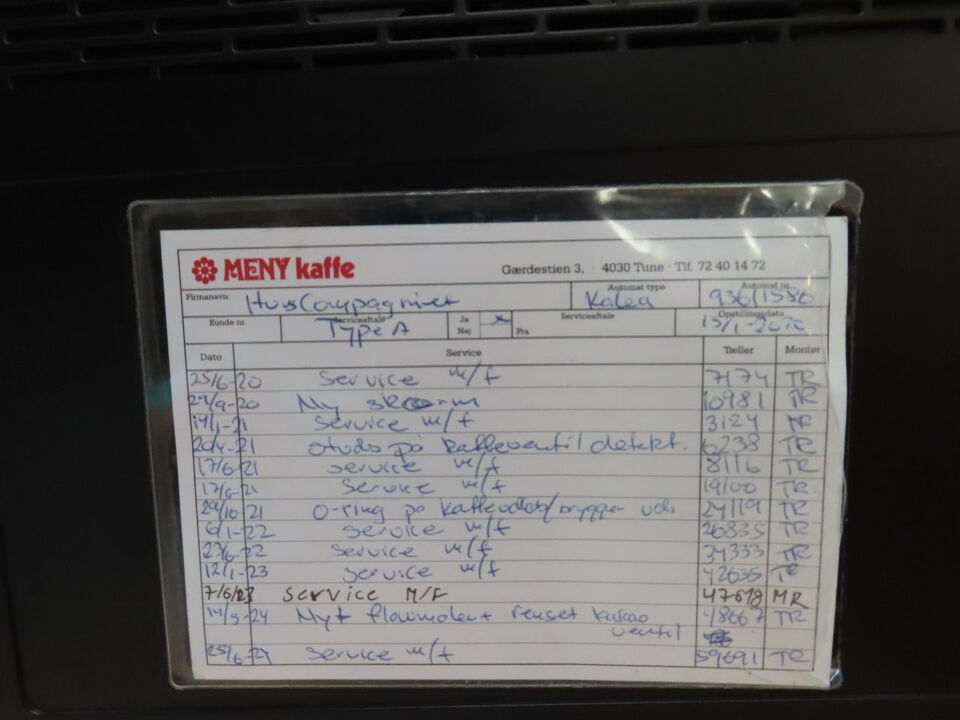 MENY kaffe
Gærdestien 3, · 4030 Tune · Tlf. 72 40 14 72
Firmanavn: HusCompagniet Automat type Kalea Automat nr. 936/1586
Kunde nr. Serviceaftale Type A Ja x Nej Fra Serviceaftale Opstillingsdato 15/1-2020
Dato Service Tæller Montør
25/6-20 Service m/f 7174 TR
-20 Ny 10981 TR
14/1-21 Service m/f 3124
-21 studs på kaffeventil defekt. 6238 TR
17/6-21 service m/f 8116 TR
-21 Service m/f 19100 TR
29/10-21 O-ring på brygger uds 24119 TR
6/1-22 service m/f 26835 TR
23/6-22 service m/f 34333 TR
12/1-23 Service m/f 42635 TR
7/6/23 service M/F 47618 MR
14/3-24 Nyt renset kakao 48667 TR
ventil
25/6-24 service m/f 59691 TR